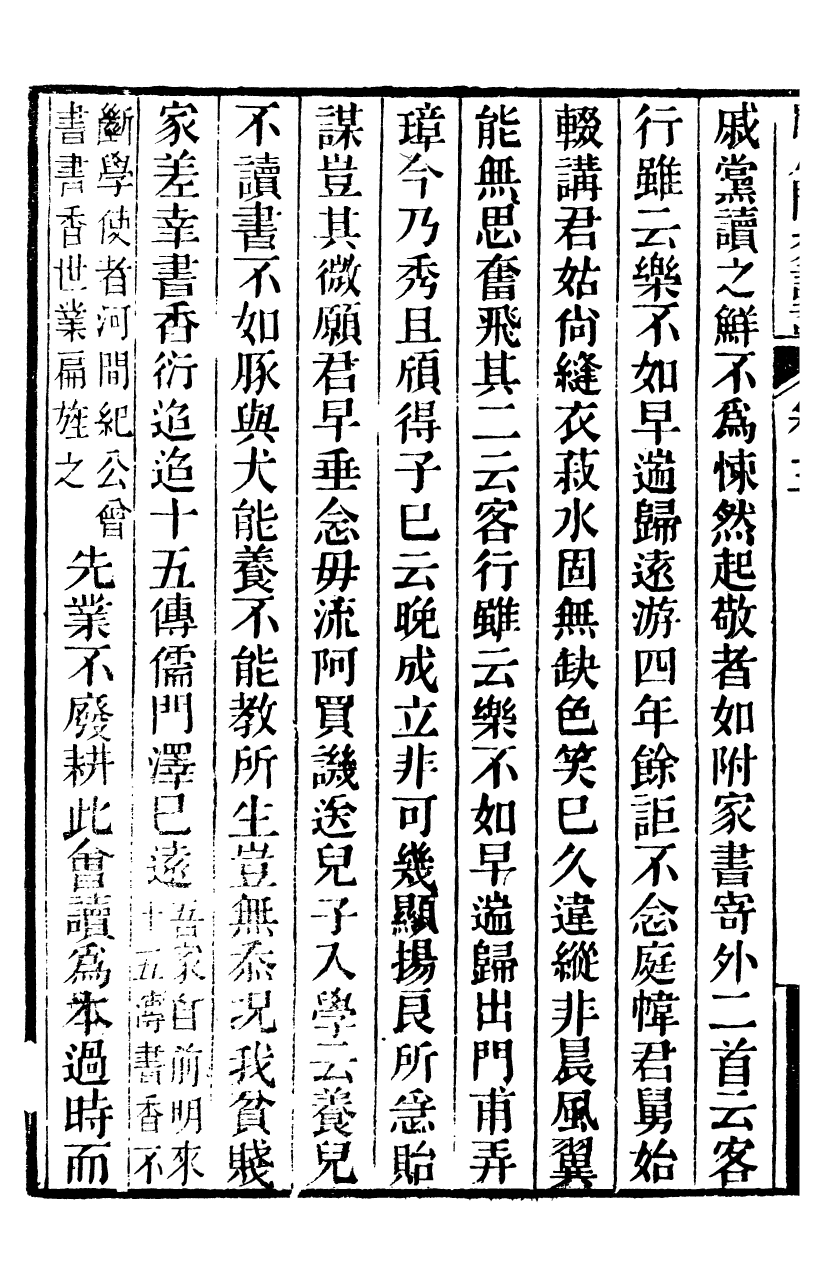 戚黨讀之鮮不爲悚然起敬者如附家書寄外二首云客
行雖云樂不如早遄歸遠游四年餘詎不念庭幃君舅始
輟講君姑尙縫衣菽水固無缺色笑已久違縱非晨風翼
能無思奮飛其二云客行雖云樂不如早遄歸出門甫弄
璋今乃秀且頎得子已云晚成立非可幾顯揚良所急貽
謀豈其微願君早垂念毋流阿買譏送兒子入學云養兒
不讀書不如豚與犬能養不能教所生豈無忝况我貧賤
家差幸書香衍迨迨十五傳儒門澤已遠吾家自前明來十五傳書香不
斷學使者河間紀公曾書書香世業扁旌之先業不廢耕此會讀爲本過時而